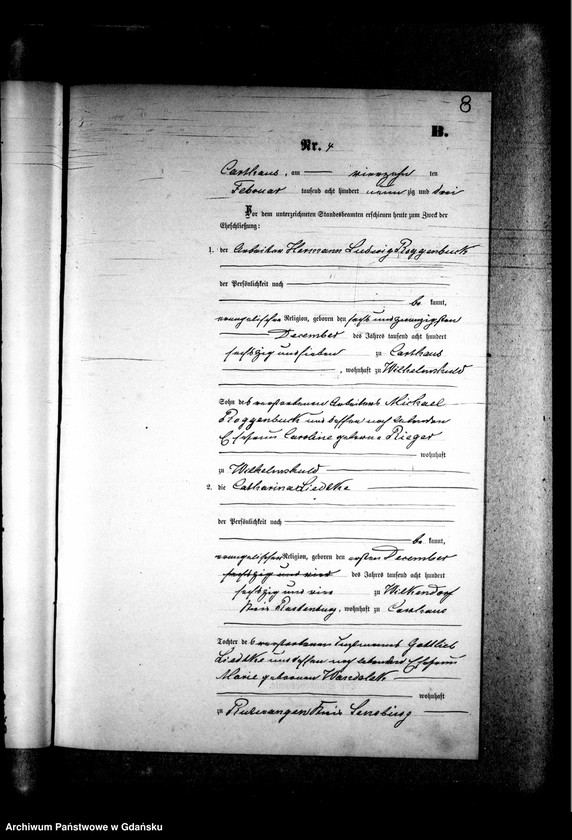 8
B.
Nr. 4
Carthaus, am vierzehn ten
Februar tausend acht hundert neun zig und drei
Vor dem unterzeichneten Standesbeamten erschienen heute zum Zweck der
Eheschließung:
1. der Arbeiter Hermann Ludwig Roggenbuck
der Persönlichkeit nach
be kannt,
evangelischer Religion, geboren den sechs und zwanzigsten
December des Jahres tausend acht hundert
sechszig und sieben zu Carthaus
, wohnhaft zu Wilhelmshuld
Sohn des verstorbenen Arbeiters Michael
Roggenbuck und dessen noch lebenden
Ehefrau Caroline geborne Rieger
wohnhaft
zu Wilhelmshuld
2. die Catharina Liedtke
der Persönlichkeit nach
be kannt,
evangelischer Religion, geboren den ersten December
sechszig und vier des Jahres tausend acht hundert
sechszig und vier zu Wilkendorf
Kreis Rastenburg, wohnhaft zu Carthaus
Tochter des verstorbenen Gottlieb
Liedtke und dessen noch lebenden Ehefrau
Marie geborenen
wohnhaft
zu Kreis Sensburg
Archiwum Państwowe w Gdańsku